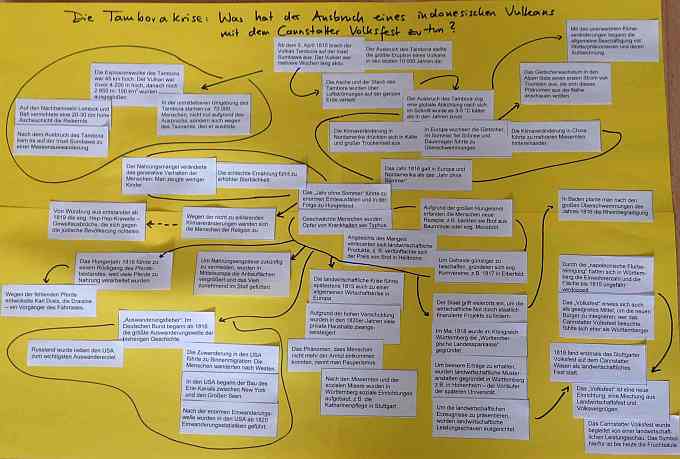 Die Tamborakrise: Was hat der Ausbruch eines indonesischen Vulkans
mit dem Cannstatter Volksfest zu tun?
Ab dem 5. April 1815 brach der
Vulkan Tambora auf der Insel
Sumbawa aus. Der Vulkan war
mehrere Wochen lang aktiv.
Der Ausbruch des Tambora stellte
die größte Eruption eines Vulkans
in den letzten 10 000 Jahren dar.
Das Gletscherwachstum in den
Alpen löste einen ersten Strom von
Touristen aus, die sich dieses
Phänomen aus der Nähe
anschauen wollten.
Die Explosionswolke des Tambora
war 45 km hoch. Der Vulkan war
zuvor 4.200 m hoch, danach noch
Auf den Nachbarinseln Lombok und
Bali vernichtete eine 20-30 cm hohe
Aschenschicht die Reisernten.
Nach dem Ausbruch des Tambora
kam es auf der Insel Sumbawa zu
einer Massenauswanderung.
In der unmittelbaren Umgebung des
Tambora starben ca. 70 000
Menschen, nicht nur aufgrund des
Ausbruchs, sondern auch wegen
des Tsunamis, den er auslöste.
Die Asche und der Staub des
Tambora wurden über
Luftströmungen auf der ganzen
Erde verteilt.
Der Ausbruch des Tambora zog
eine globale Abkühlung nach sich.
Im Schnitt wurde es 3-5 °C kälter
als in den Jahren zuvor.
Die Klimaveränderung in
Nordamerika drückten sich in Kälte
und großer Trockenheit aus.
In Europa wuchsen die Gletscher,
im Sommer fiel Schnee und
Dauerregen führte zu
Überschwemmungen.
Die Klimaveränderung in China
führte zu mehreren Missernten
hintereinander.
Das Jahr 1816 galt in Europa und
Nordamerika als das „Jahr ohne
Sommer“.
Der Nahrungsmangel veränderte
das generative Verhalten der
Menschen: Man zeugte weniger
Kinder.
Die schlechte Ernährung führt zu
erhöhter Sterblichkeit.
Das „Jahr ohne Sommer“ führte zu
enormen Ernteausfällen und in der
Folge zu Hungersnot.
Geschwächte Menschen wurden
Opfer von Krankheiten wie Typhus.
Von Würzburg aus entstanden ab
1819 die sog. Hep-Hep-Krawalle –
Gewaltausbrüche, die sich gegen
die jüdische Bevölkerung richteten.
Wegen der nicht zu erklärenden
Klimaveränderungen wandten sich
die Menschen der Religion zu.
Aufgrund der großen Hungersnot
erfanden die Menschen neue
Rezepte, z.B. backten sie Brot aus
Baumrinde oder sog. Moosbrot.
In Baden plante man nach den
großen Überschwemmungen des
Jahres 1816 die Rheinbegradigung.
Angesichts des Mangels
verteuerten sich landwirtschaftliche
Produkte, z. B. verfünffachte sich
der Preis von Brot in Heilbronn.
Das Hungerjahr 1816 führte zu
einem Rückgang des Pferde-
bestandes, weil viele Pferde zu
Nahrung verarbeitet wurden.
Um Nahrungsengpässe zukünftig
zu vermeiden, wurden in
Mitteleuropa die Anbauflächen
vergrößert und das Vieh
zunehmend im Stall gefüttert.
Um Getreide günstiger zu
beschaffen, gründeten sich sog.
Kornvereine, z.B. 1817 in Elberfeld.
Wegen der fehlenden Pferde
entwickelte Karl Drais, die Draisine
– ein Vorgänger des Fahrrades.
Die landwirtschaftliche Krise führte
spätestens 1816 auch zu einer
allgemeinen Wirtschaftskrise in
Europa.
Aufgrund der hohen Verschuldung
wurden in den 1820er Jahren viele
private Haushalte zwangs-
versteigert.
Das Phänomen, dass Menschen
nicht mehr der Armut entkommen
konnten, nennt man Pauperismus.
Nach den Missernten und der
sozialen Misere wurden in
Württemberg soziale Einrichtungen
aufgebaut, z.B. die
Katharinenpflege in Stuttgart.
„Auswanderungsfieber“: Im
Deutschen Bund begann ab 1816
die größte Auswanderungswelle der
bisherigen Geschichte.
Russland wurde neben den USA
zum wichtigsten Auswandererziel.
Die Zuwanderung in den USA
führte zu Binnenmigration: Die
Menschen wanderten nach Westen.
In den USA begann der Bau des
Erie-Kanals zwischen New York
und den Großen Seen.
Nach der enormen Einwanderungs-
welle wurden in den USA ab 1820
Einwanderungsstatistiken geführt.
Der Staat griff vielerorts ein, um die
wirtschaftliche Not durch staatlich
finanzierte Projekte zu lindern.
Im Mai 1818 wurde im Königreich
Württemberg die „Württember-
gische Landessparkasse“
gegründet.
Um bessere Erträge zu erhalten,
wurden landwirtschaftliche Muster-
anstalten gegründet in Württemberg
z.B. in Hohenheim – der Vorläufer
der späteren Universität.
Um die landwirtschaftlichen
Erzeugnisse zu präsentieren,
wurden landwirtschaftliche
Leistungsschauen ausgerichtet.
Durch die „napoleonische Flurbe-
reinigung“ hatten sich in Württem-
berg die Einwohnerzahl und die
Fläche bis 1810 ungefähr
verdoppelt.
Das „Volksfest“ erwies sich auch
als geeignetes Mittel, um die neuen
Bürger zu integrieren: wer das
Cannstatter Volksfest besuchte,
fühlte sich eher als Württemberger.
1818 fand erstmals das Stuttgarter
Volksfest auf dem Cannstatter
Wasen als landwirtschaftliches
Fest statt.
Das „Volksfest“ ist eine neue
Einrichtung, eine Mischung aus
Landwirtschaftsfest und
Volksvergnügen.
Das Cannstatter Volksfest wurde
begleitet von einer landwirtschaft-
licher Leistungsschau. Das Symbol
hierfür ist bis heute die Fruchtsäule.